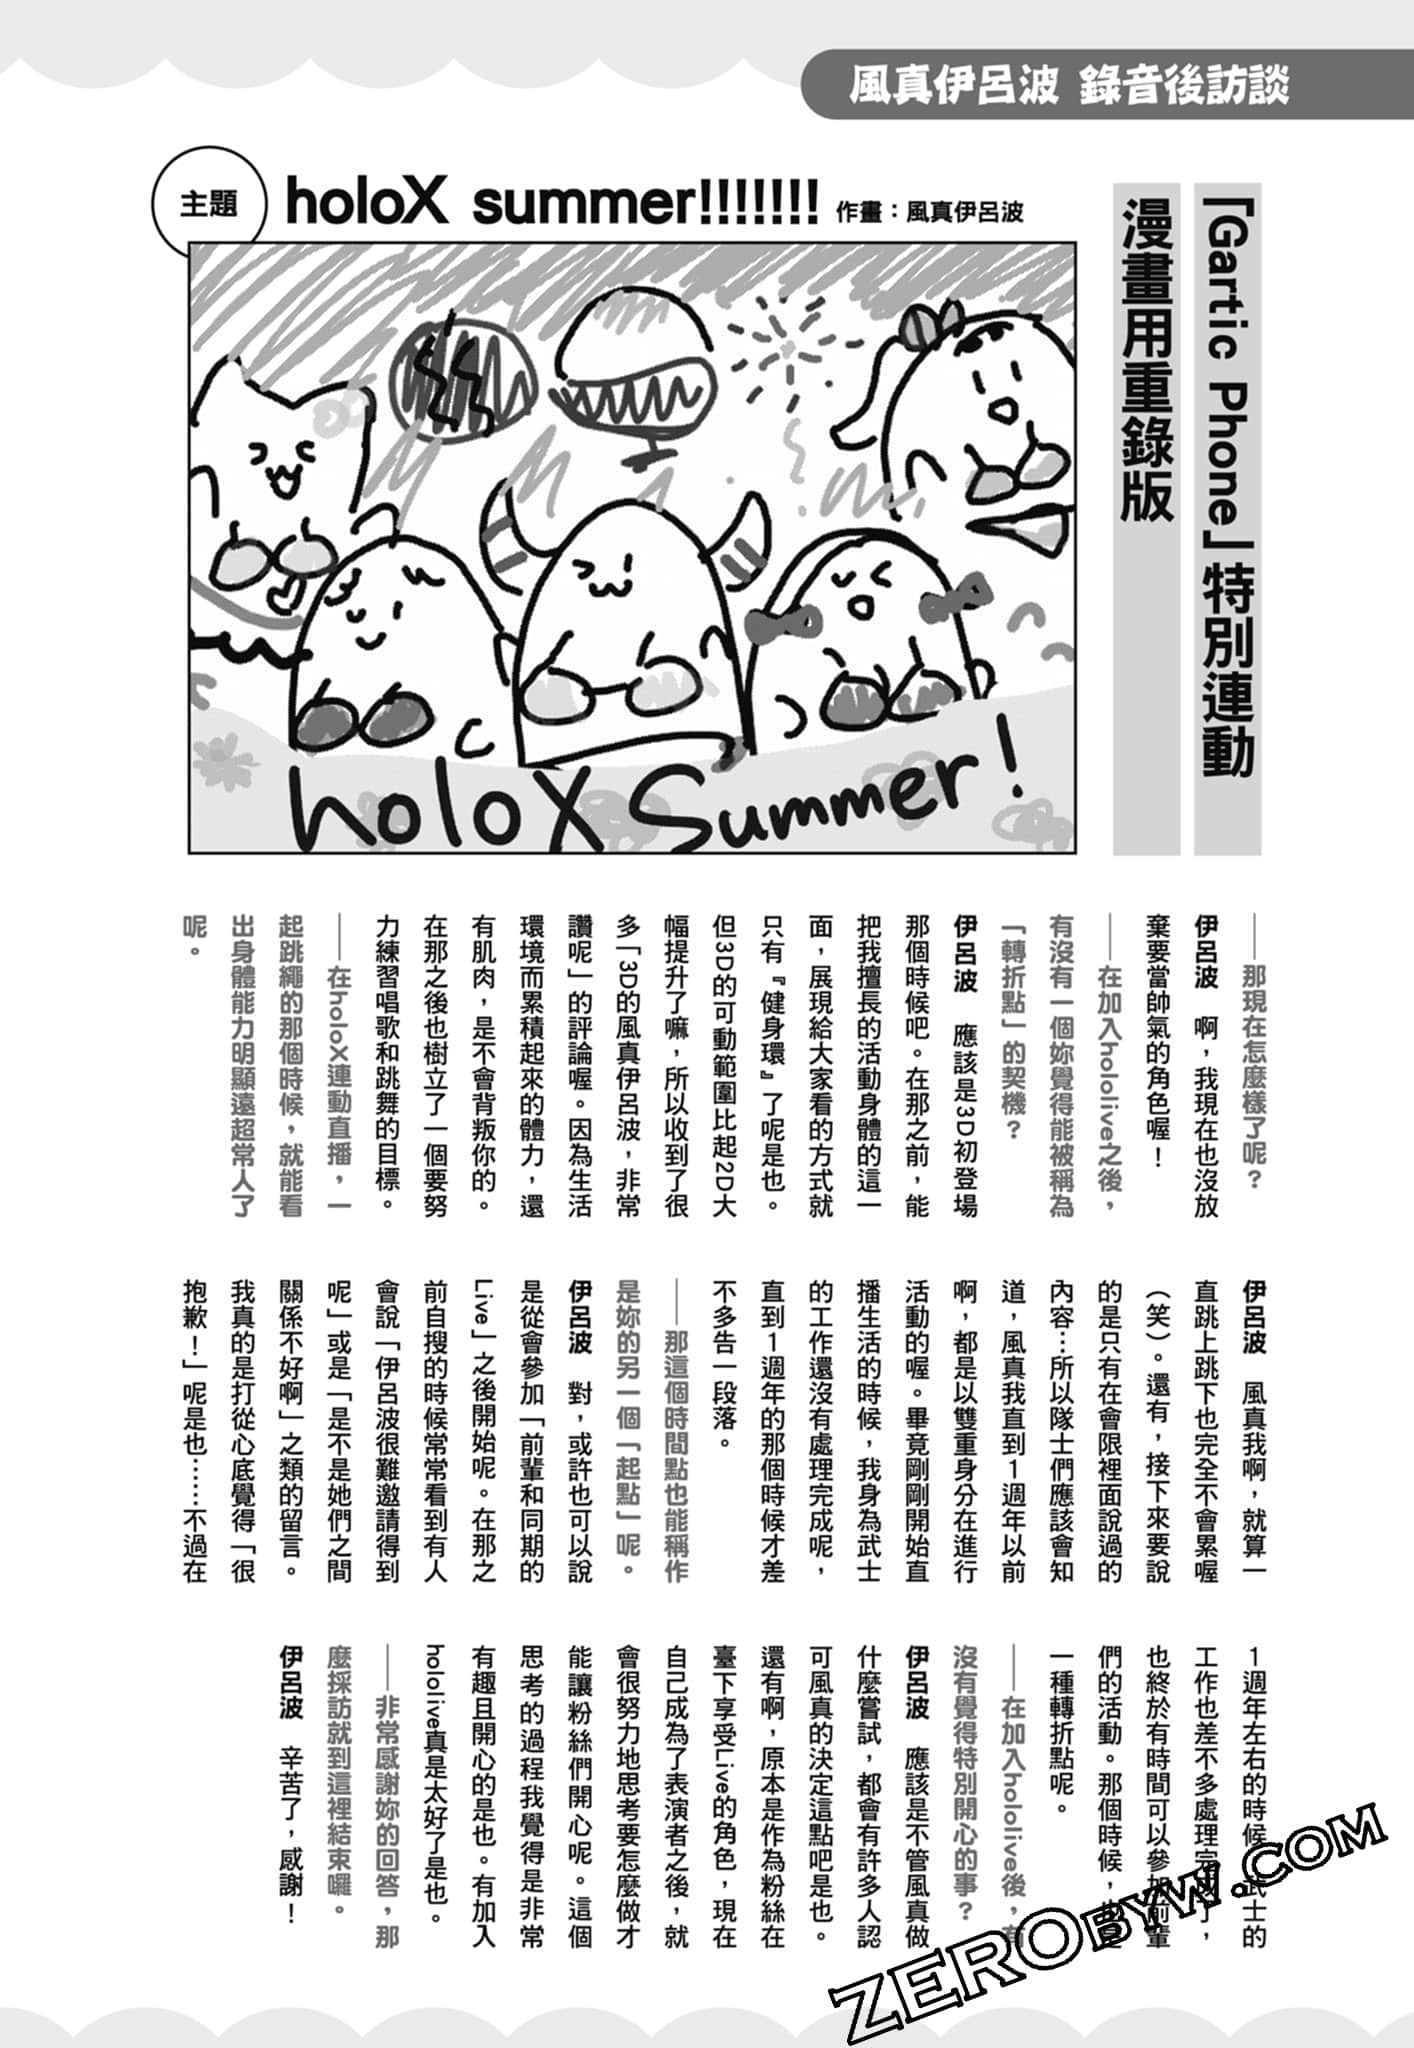 風真伊呂波 錄音後訪談
「Gartic Phone」特別連動
漫畫用重錄版
主題
holoX summer!!!!!!!
作畫：風真伊呂波
holoX Summer!
——那現在怎麼樣了呢？
伊呂波　啊，我現在也沒放
棄要當帥氣的角色喔！
——在加入hololive之後，
有沒有一個妳覺得能被稱為
「轉折點」的契機？
伊呂波　應該是3D初登場
那個時候吧。在那之前，能
把我擅長的活動身體的這一
面，展現給大家看的方式就
只有『健身環』了呢是也。
但3D的可動範圍比起2D大
幅提升了嘛，所以收到了很
多「3D的風真伊呂波，非常
讚呢」的評論喔。因為生活
環境而累積起來的體力，還
有肌肉，是不會背叛你的。
在那之後也樹立了一個要努
力練習唱歌和跳舞的目標。
——在holoX連動直播，一
起跳繩的那個時候，就能看
出身體能力明顯遠超常人了
呢。
伊呂波　風真我啊，就算一
直跳上跳下也完全不會累喔
（笑）。還有，接下來要說
的是只有在會限裡面說過的
內容…所以隊士們應該會知
道，風真我直到1週年以前
啊，都是以雙重身分在進行
活動的喔。畢竟剛剛開始直
播生活的時候，我身為武士
的工作還沒有處理完成呢，
直到1週年的那個時候才差
不多告一段落。
——那這個時間點也能稱作
是妳的另一個「起點」呢。
伊呂波　對，或許也可以說
是從會參加「前輩和同期的
Live」之後開始呢。在那之
前自搜的時候常常看到有人
會說「伊呂波很難邀請得到
呢」或是「是不是她們之間
關係不好啊」之類的留言。
我真的是打從心底覺得「很
抱歉！」呢是也……不過在
1週年左右的時候武士的
工作也差不多處理完成了，
也終於有時間可以參加前輩
們的活動。那個時候，也是
一種轉折點呢。
——在加入hololive後，有
沒有覺得特別開心的事？
伊呂波　應該是不管風真做
什麼嘗試，都會有許多人認
可風真的決定這點吧是也。
還有啊，原本是作為粉絲在
臺下享受Live的角色，現在
自己成為了表演者之後，就
會很努力地思考要怎麼做才
能讓粉絲們開心呢。這個
思考的過程我覺得是非常
有趣且開心的是也。有加入
hololive真是太好了是也。
——非常感謝妳的回答，那
麼採訪就到這裡結束囉。
伊呂波　辛苦了，感謝！
ZEROBYW.COM